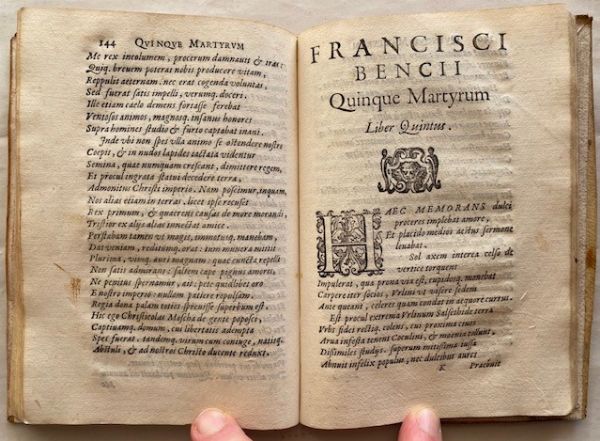 144 QVINQVE MARTYRVM
Me rex incolumem, procerum damnauit & iras:
Quiq. breuem poterat nobis producere vitam,
Reppulit aeternam. nec erat cogenda voluntas,
Sed fuerat satis impelli, verumq. doceri.
Ille etiam caelo demens fortasse ferebat
Ventosos animos, magnosq. insanus honores
Supra homines studio & furto captabat inani.
Inde vbi non spes vlla animo se ostendere nostro
Coepit, & in nudos lapides iactata videntur
Semina, quae numquam crescant, dimittere regem,
Et procul ingrata statui decedere terra,
Admonitus Christi imperio. Nam poscimur, inquam,
Nos alias etiam in terras. licet ipse recuset
Rex primum, & quaerens causas do more morandi,
Tristior ex alijs alias innectat amice.
Perstabam tamen vt magis, immotusq. manebam,
Dat veniam, reditumq. orat: tum munera mittit
Plurima, vimq. auri magnam: quae cuncta repelli
Non satis admirans: saltem cape pignus amoris,
Ne penitus spernamur, ait: pete quidlibet oro
E nostro imperio: nullam patiere repulsam.
Regia dona palam toties spreuisse superbum est.
Hic ego Christicolas Moscha de gente poposci
Captiuamq. domum, cui libertatis adempta
Spes fuerat. tandemq. virum cum coniuge, natisq.
Abstuli, & ad nostros Christo ducente reduxi.
FRANCISCI
BENCII
Quinque Martyrum
Liber Quintus.
HAEC MEMORANS dulci
proceres implebat amore,
Et placido medios aestus sermone
leuabat.
Sol axem interea celso de
vertice torquens
Impulerat, qua prona via est, cupidosq. manebat
Carpere iter socios, Vrleni vt visere sedem
Ante queant, celeres quam condat in aequore currus.
Est procul extrema Velinum Salsethide terra
Vrbs fidei rectiq. colens, cui proxima ciues
Arua infesta tenent Coculini, & moenia tollunt,
Dissimiles studijs. superum mitissima iussa
Abnuit infelix populus, nec dulcibus aures
K Praebuit